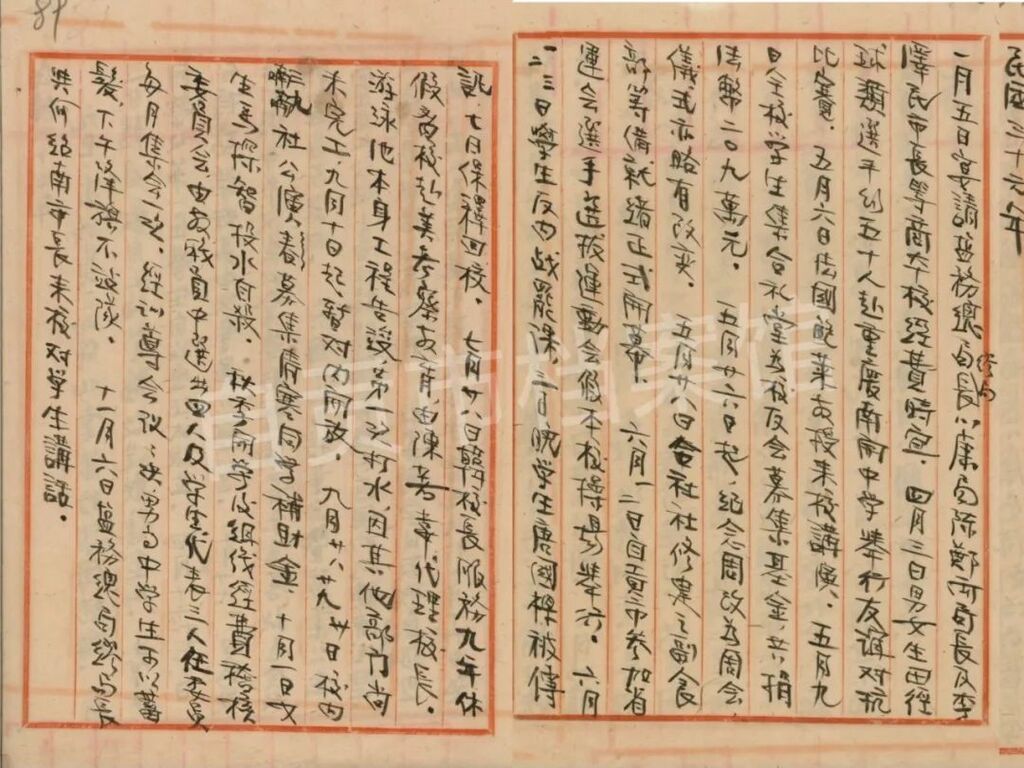 民國三十六年
一月五日宴請鹽務總局長缪局及李
澤民市長等商本校經費時宜．四月三日男女生田徑
球類選手約五十人赴重慶南開中学舉行友誼对抗
比賽．五月六日法國教授来校講演．五月九
日全校学生集合礼堂為校友会募集基金，共捐
法幣二〇九萬元．五月廿六日起，紀念周改為周会
儀式亦略有改变．五月廿八日合社社修建之副食
部筹備就緒正式開幕．六月一二日自貢市参加省
運会選手選拔運動会假本校操場舉行．六月
一二三日學生反内战罷課三日晚学生唐國樑被傳
訊，七日保釋回校．七月廿八日韓校長服務九年休
假旅校赴美考察教育，由陳著韋代理校長．
游泳池本身工程告竣第一次打水，因其他部门尚
未完工，九月十日起暫对内開放．九月廿八廿九卅日校内
社公演春募集清寒同学補助金．十月一日女
生馬探智投水自殺．秋季開学後組織經費稽核
委員会由教職員中選出四人及学生代表三人任委員
每月集会一次．經訓導会议：决男高中学生可以蓄
髮，下午降旗不站隊．十一月六日鹽務總局缪局長
與何紹南市長来校对学生講話．
自贡市档案馆
89